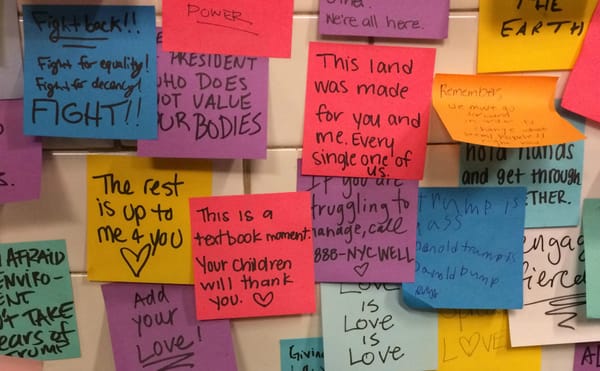 Fight back!!
Fight for equality!
Fight for decency!
FIGHT!!
POWER
PRESIDENT
WHO DOES
NOT VALUE
OUR BODIES
We're all here.
THE
EARTH
This land
was made
for you and
me. Every
single one of
us.
Remember,
we must go
forward
hold hands
and get through
TOGETHER.
The rest
is up to
me & you
This is a
textbook moment.
Your children
will thank
you.
If you are
struggling to
manage, call
888-NYCWELL
Trump is
ass
Donald trump is
Donald Dump
engage
fierce
AFRAID
ENVIRO-
MENT
TAKE
years of
TRUMP
Add
your
Love!
LOVE
IS
LOVE
IS
LOVE
LOVE
Giving